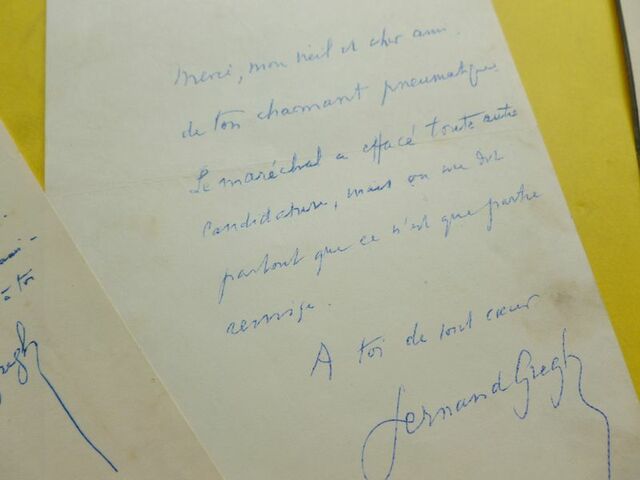 Merci, mon vieil et cher ami.
de ton charmant pneumatique.
Le maréchal a effacé toute autre
candidature, mais on me dit
partout que ce n'est que partie
remise.
A toi de tout cœur
Fernand Gregh
à toi